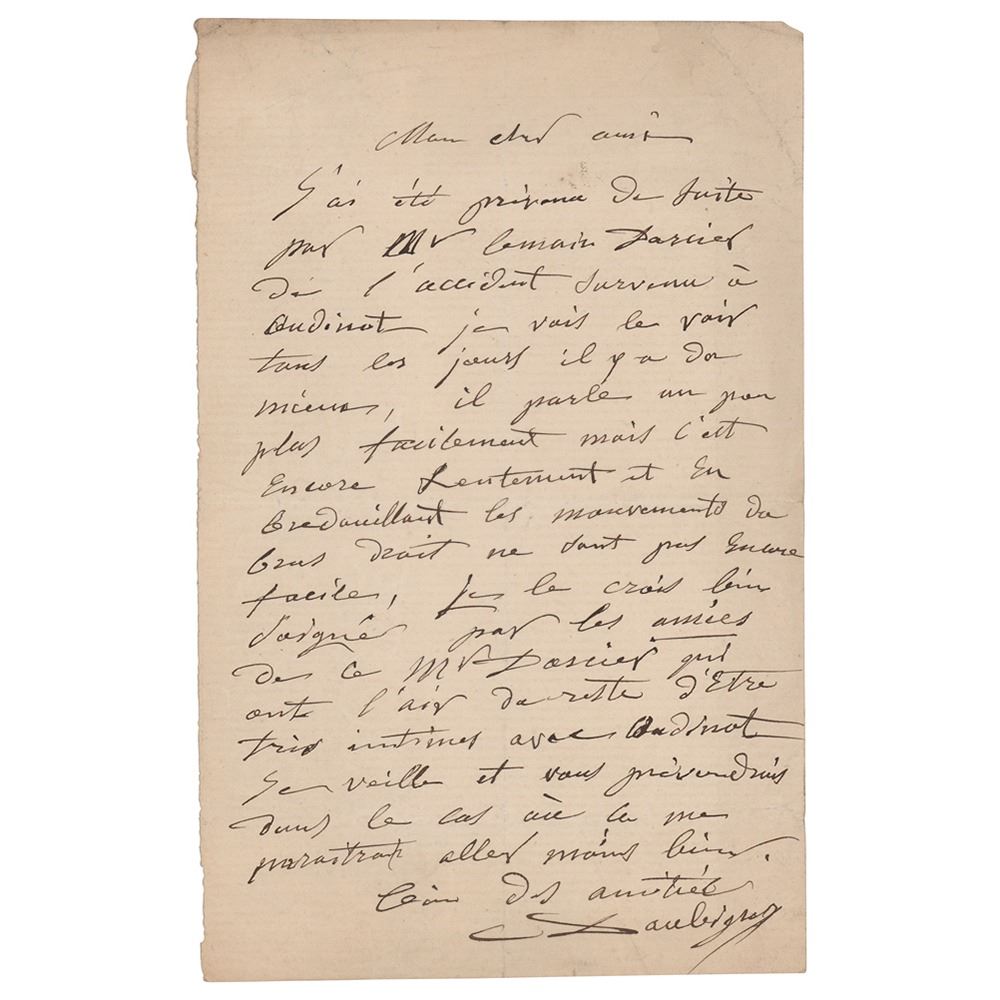 Mon cher ami
J'ai été prévenu de suite
par Mr Darcier
de l'accident survenu à
Oudinot je vais le voir
tous les jours il y a du
mieux, il parle un peu
plus facilement mais c'est
encore lentement et en
bredouillant les mouvements du
bras droit ne sont pas encore
facile, je le crois bien
soigné par les amies
de ce Mr Darcier qui
ont l'air du reste d'être
très intimes avec Oudinot
Je veille et vous préviendrais
dans le cas où ça me
paraitrait aller moins bien.
bien des amitiés
Daubigny